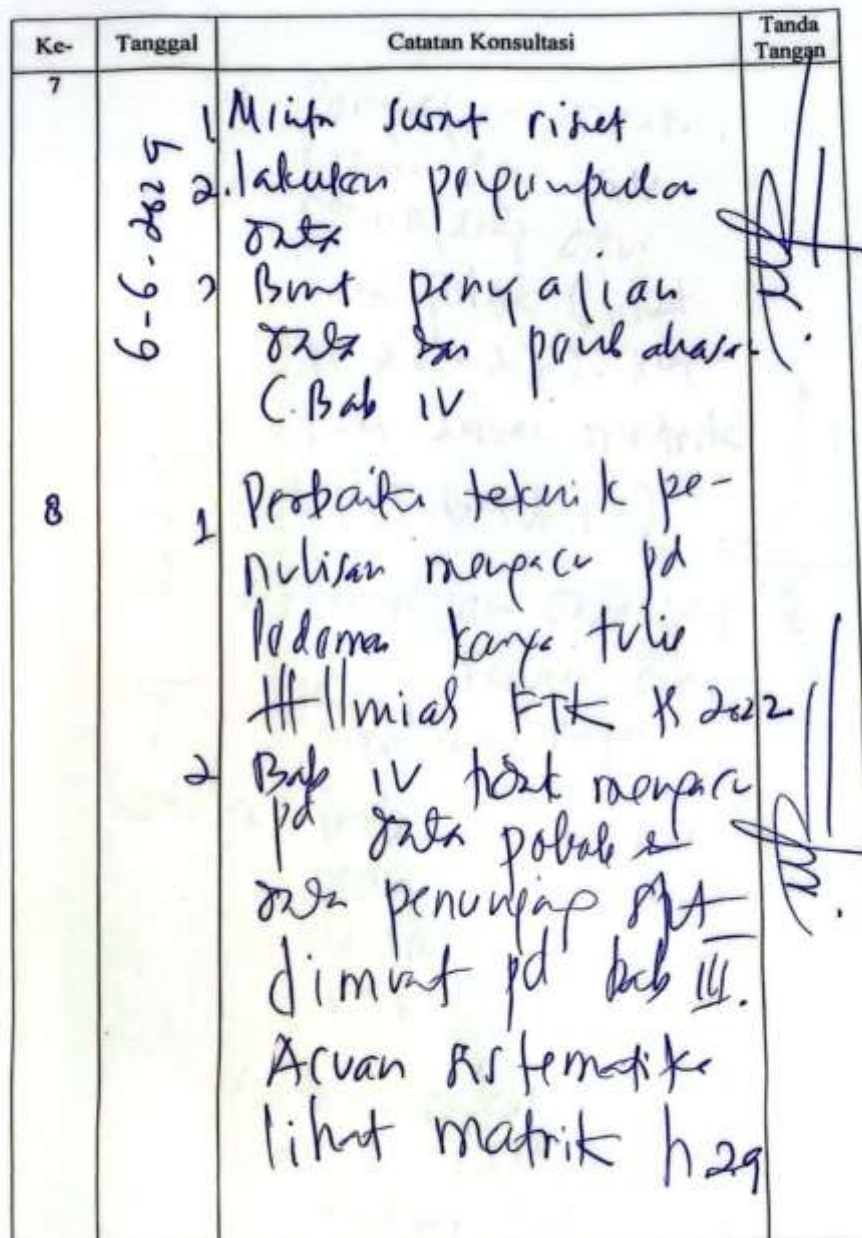 Ke- Tanggal Catatan Konsultasi Tanda Tangan
7
6-6-2024
1 Minta surat riset
2. lakukan pengumpulan
data
3 Buat penyajian
data dan pembahasan
C. Bab IV
8
1 Perbaika teknik pe-
nulisan mengacu pd
Pedoman karya tulis
Ilmiah FTK 2022
2 Bab IV tidak mengacu
pd data pokok &
data penunjang
dimuat pd bab III.
Acuan sistematika
lihat matrik h 29